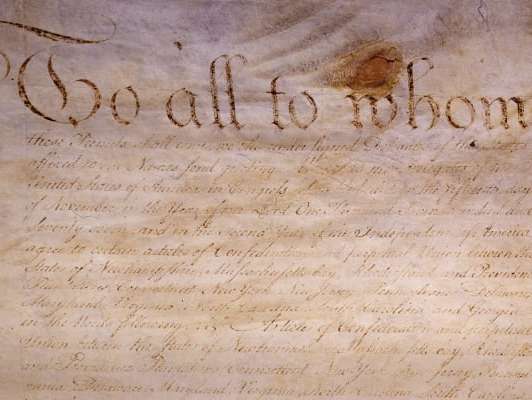 To all to whom
these Presents shall come, we the under signed Delegates of the States
affixed to our Names send greeting. Whereas the Delegates of the
United States of America in Congress assembled did on the fifteenth day
of November in the Year of our Lord One Thousand Seven Hundred and
Seventy seven, and in the Second Year of the Independence of America
agree to certain articles of Confederation and perpetual Union between the
States of Newhampshire, Massachusetts-bay, Rhodeisland and Providence
Plantations, Connecticut, New York, New Jersey, Pennsylvania, Delaware
Maryland, Virginia, North Carolina, South Carolina and Georgia
in the Words following, viz. Articles of Confederation and perpetual
Union between the States of Newhampshire, Massachusetts-bay, Rhodeisland
and Providence Plantations, Connecticut, New York, New Jersey, Pennsyl
vania, Delaware, Maryland, Virginia, North Carolina, South Carolina